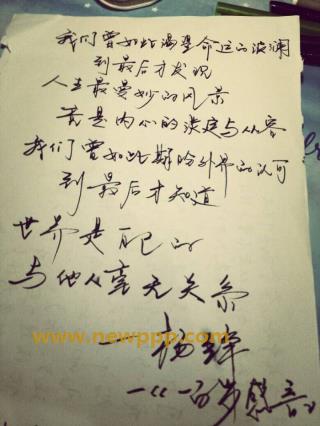 我们曾如此渴望命运的波澜
到最后才发现
人生最曼妙的风景
竟是内心的淡定与从容
我们曾如此期盼外界的认可
到最后才知道
世界是自己的
与他人毫无关系
www.newppp.com
一杨绛
一百岁感言